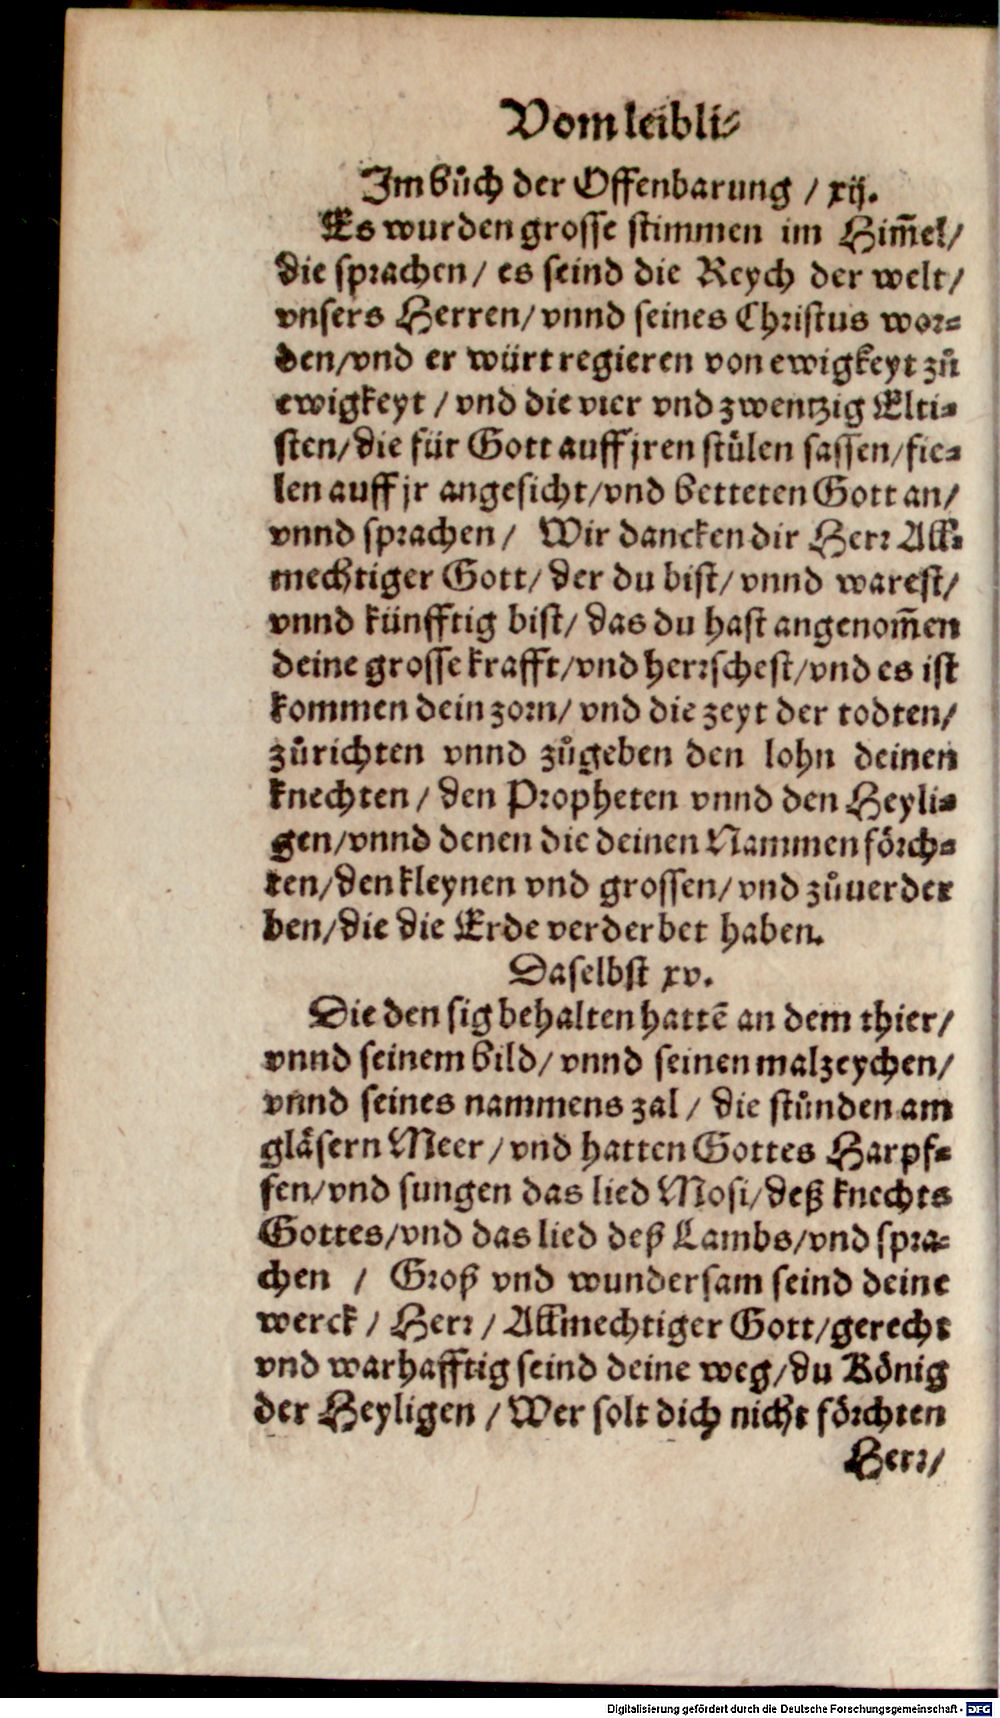 Vom leibli⸗
Im bůch der Offenbarung / xij.
Es wurden grosse stimmen im Him̃el/
die sprachen/ es seind die Reych der welt/
vnsers Herren/ vnnd seines Christus wor⸗
den/vnd er würt regieren von ewigkeyt zů
ewigkeyt / vnd die vier vnd zwentzig Elti⸗
sten/die für Gott auff jren stůlen sassen/fie⸗
len auff jr angesicht/vnd betteten Gott an/
vnnd sprachen / Wir dancken dir Herr All⸗
mechtiger Gott/ der du bist/ vnnd warest/
vnnd künfftig bist/ das du hast angenom̃en
deine grosse krafft/vnd herrschest/vnd es ist
kommen dein zorn/ vnd die zeyt der todten/
zůrichten vnnd zůgeben den lohn deinen
knechten / den Propheten vnnd den Heyli⸗
gen/vnnd denen die deinen Nammen förch⸗
ten/den kleynen vnd grossen/ vnd zůuerder
ben/die die Erde verderbet haben.
Daselbst xv.
Die den sig behalten hattē an dem thier/
vnnd seinem bild/ vnnd seinen malzeychen/
vnnd seines nammens zal / die stůnden am
gläsern Meer / vnd hatten Gottes Harpf⸗
fen/vnd sungen das lied Mosi/deß knechts
Gottes/vnd das lied deß Lambs/vnd spra⸗
chen / Groß vnd wundersam seind deine
werck / Herr / Allmechtiger Gott/gerecht
vnd warhafftig seind deine weg/du König
der Heyligen / Wer solt dich nicht förchten
Herr/
Digitalisierung gefördert durch die Deutsche Forschungsgemeinschaft - DFG